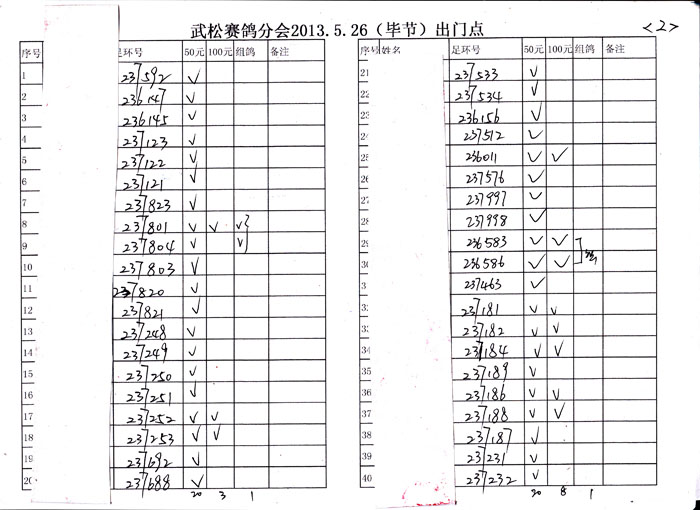 武松赛鸽分会2013.5.26（毕节）出门点 <2>
序号 足环号 50元 100元 组鸽 备注
1 237592 √
2 236147 √
3 236145 √
4 237123 √
5 237122 √
6 237121 √
7 237823 √
8 237801 √ √ √
9 237804 √ √
10 237803 √
11 237820 √
12 237821 √
13 237248 √
14 237249 √
15 237250 √
16 237251 √
17 237252 √ √
18 237253 √ √
19 237692 √
20 237688 √
20 3 1
序号 姓名 足环号 50元 100元 组鸽 备注
21 237533 √
22 237534 √
23 236156 √
24 237512 √
25 236011 √ √
26 237576 √
27 237997 √
28 237998 √
29 236583 √ √
30 236586 √ √
3 237463 √
3 237181 √ √
3 237182 √ √
34 237184 √ √
35 237189 √
36 237186 √ √
37 237188 √ √
38 237187 √
39 237231 √
40 237232 √
20 8 1